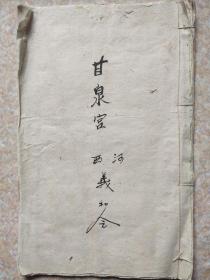 甘泉宫
河西
義和合